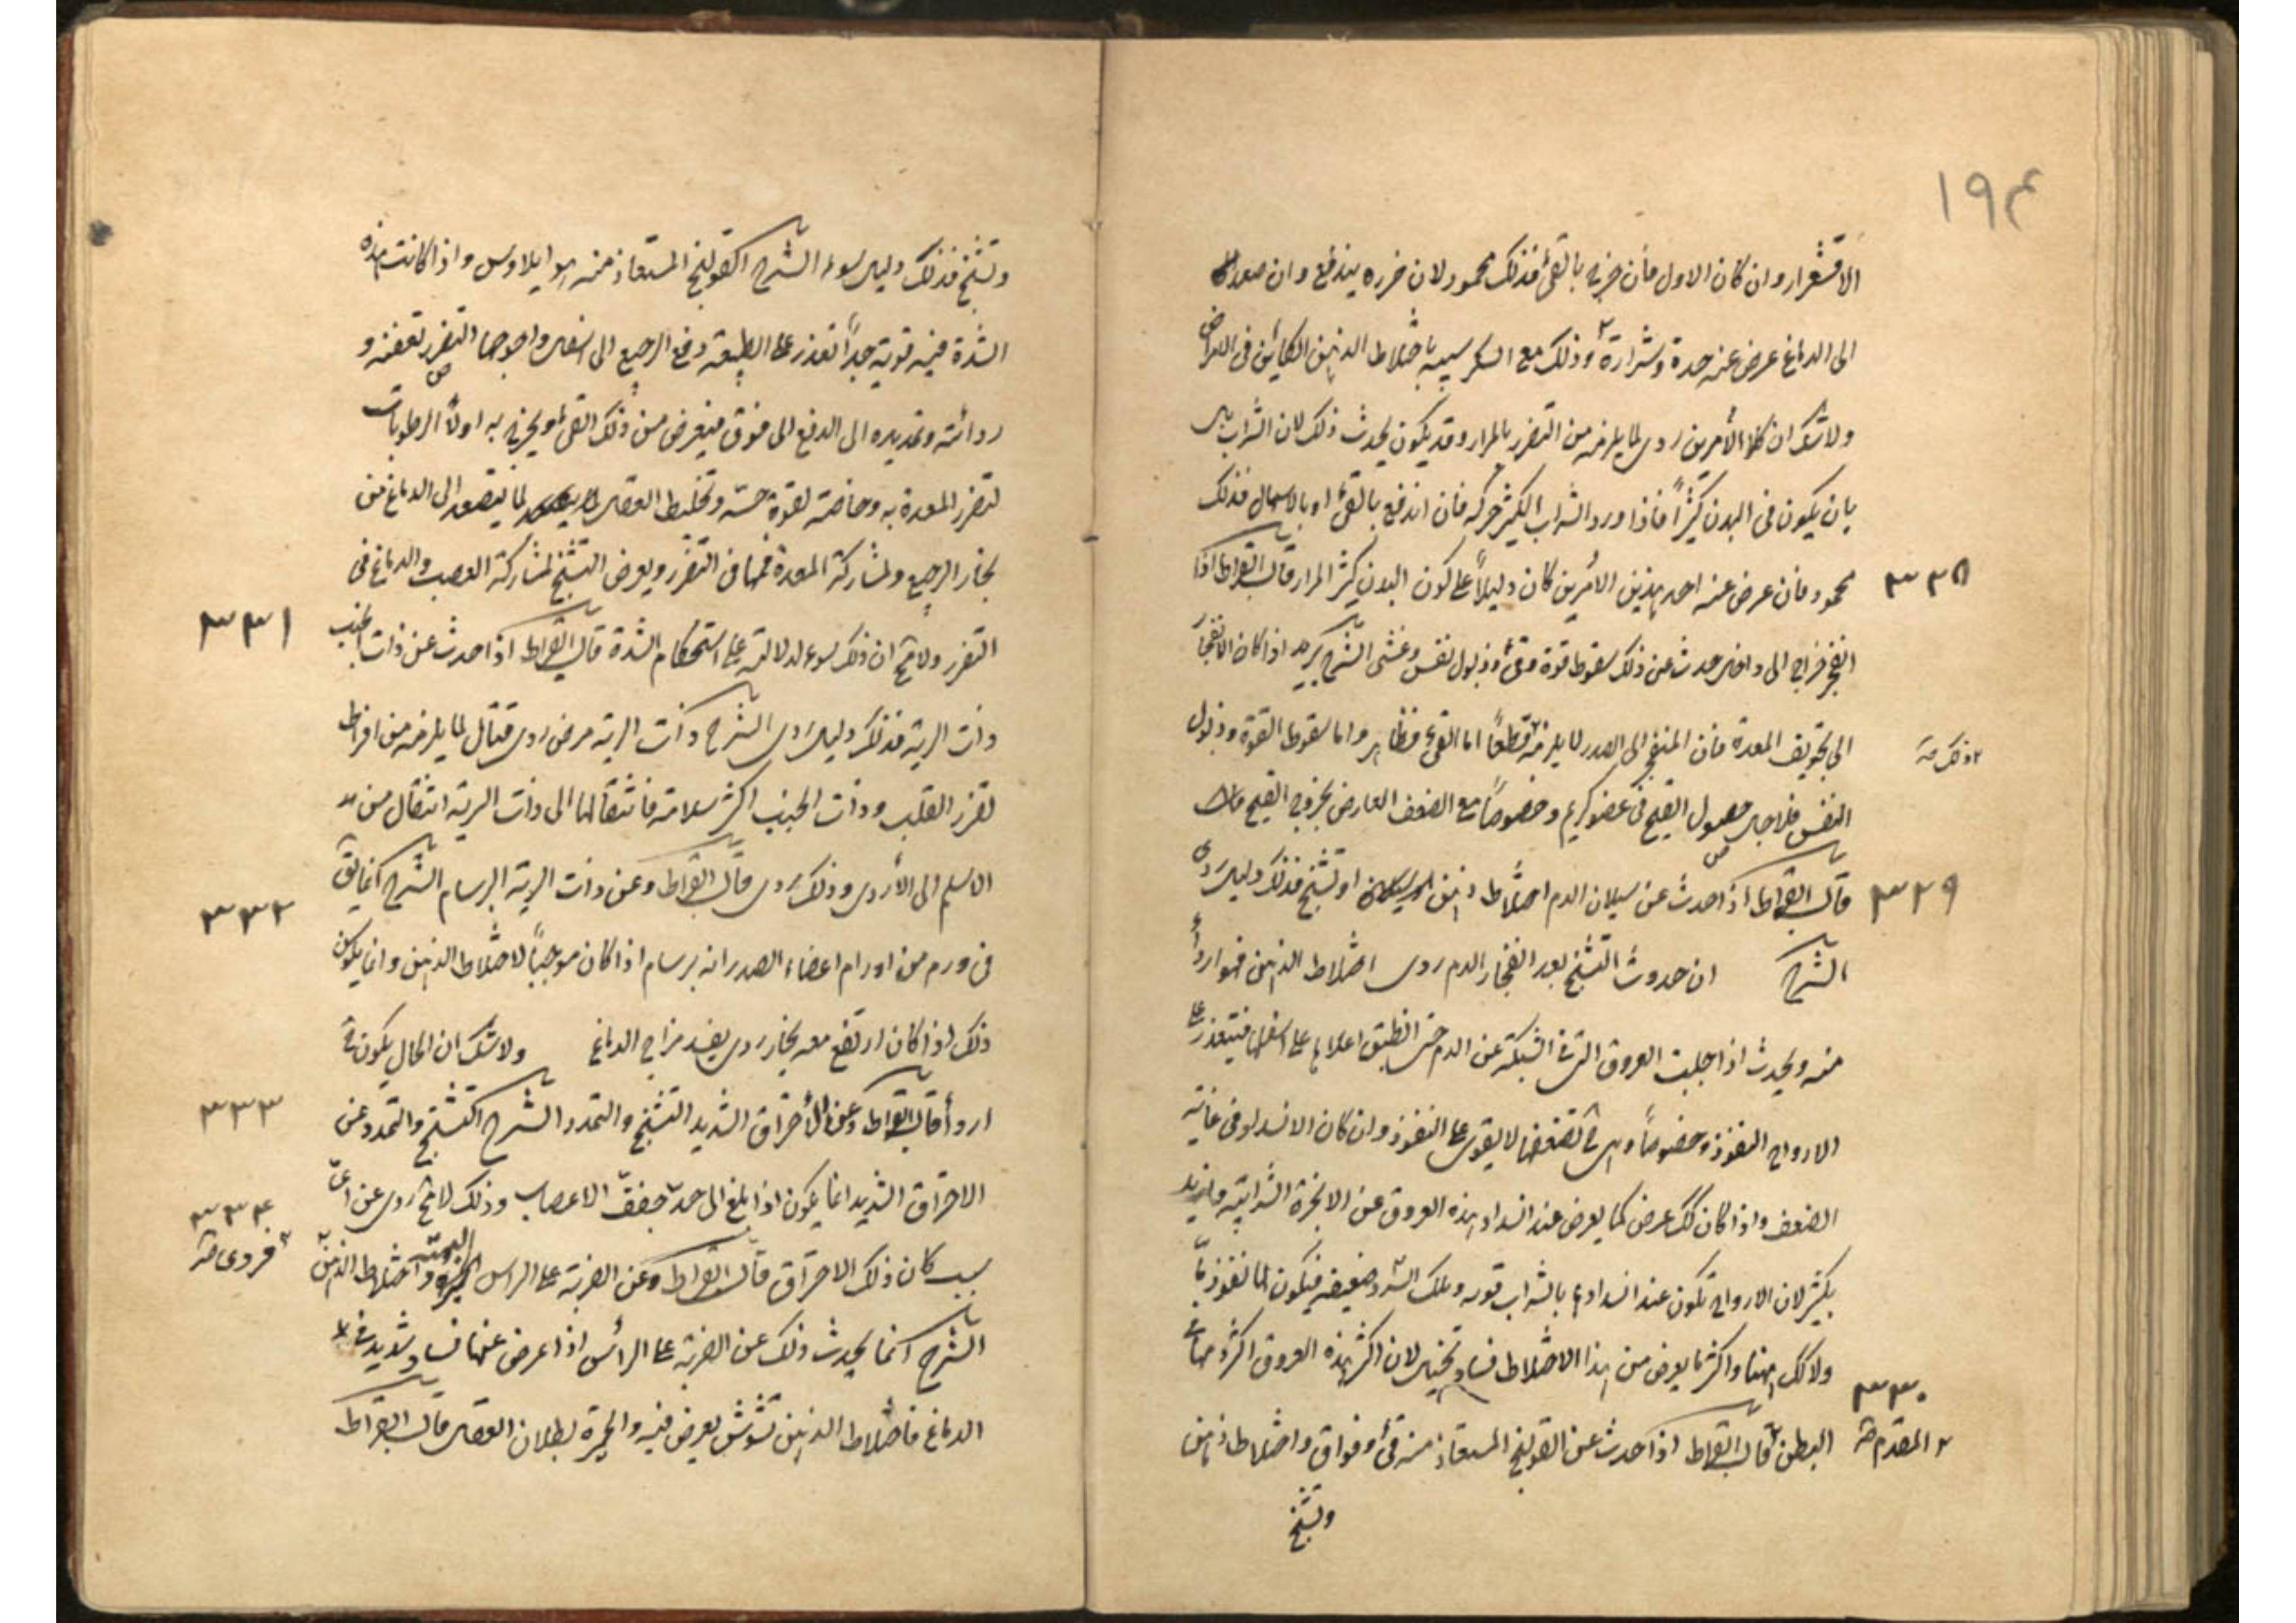 ١٩٤
الاقشعرار وان كان الاول فان خرج بالقئ فذلك محمود لان ضرره يندفع وان صعد
الى الدماغ عرض عنه حدة وشرارة وذلك مع السكر سببه باختلاط الذهن الكائن فى الامراض
ولا شك ان كلا الأمرين ردى لما يلزمه من التضرر بالمرار وقد يكون يحدث ذلك لان الشراب
بان يكون فى البدن كثيراً فاذا ورد الشراب الكثير حركه فان اندفع بالقئ او بالاسهال فذلك
محمود فان عرض عنه احد هذين الأمرين كان دليلاً على كون البدن كثير المرار قال ابقراط اذا
٣٢٨
انفجر خراج الى داخل حدث عن ذلك سقوط قوة وقئ وذبول نفس وغشى الشرح يريد اذا كان الانفجار
الى تجويف المعدة فان المنفجر الى الصدر لا يلزمه قطعاً اما القئ فظاهر واما سقوط القوة وذبول
٢ ذلك صح
النفس فلاجل حصول القيح فى عضو كريم وخصوصاً مع الضعف العارض بخروج القيح
قال ابقراط اذا حدث عن سيلان الدم اختلاط ذهن او تشنج فذلك دليل ردى
٣٢٩
الشرح ان حدوث التشنج بعد انفجار الدم ردى اختلاط الذهن فهو اردأ
منه ويحدث اذا خلت العروق التى فى الشبكة عن الدم حتى انطبق اعلاها على اسفلها فيتعذر على
الارواح النفوذ وخصوصاً وهى فى لضعفها لا يقوى على النفوذ وان كان الانسداد فى غاية
الضعف واذا كان كك عرض كما يعرض عند انسداد هذه العروق عن الابخرة الشرابية وازيد
بكثير لان الارواح تكون عند انسدادها بالشراب قوية وتلك السدد ضعيفة فيكون لها نفوذ ما
ولا كك ههنا واكثر ما يعرض من هذا الاختلاط فساد تخيل لان اكثر هذه العروق اكثرها فى
٣٣٠
البطن قال ابقراط اذا حدث عن القولنج المستعاذ منه قئ وفواق واختلاط ذهن
٢ المقدم صح
وتشنج
وتشنج فذلك دليل سوء الشرح القولنج المستعاذ منه هو ايلاوس واذا كانت هذه
الشدة فيه قوية جداً تعذر على الطبيعة دفع الرجيع الى اسفل واحوجها التضرر بعفنه و
ردائته وتمديده الى الدفع الى فوق فيعرض من ذلك القئ ويخرج به اولاً الرطوبات
لتضرر المعدة به وخاصة لقوة حسه وتخليط العقل لما يتصعد الى الدماغ من
بخار الرجيع ولمشاركة المعدة فمها فى التضرر ويعرض التشنج لمشاركة العصب والدماغ فى
التضرر ولا شح ان ذلك سوء لدلالته على استحكام الشدة قال ابقراط اذا حدث عن ذات الجنب
٣٣١
ذات الرية فذلك دليل ردى الشرح ذات الرية مرض ردى قتال لما يلزمه من افراط
تضرر القلب وذات الجنب اكثر سلامة فانتقالها الى ذات الرية انتقال من
الاسلم الى الأردى وذلك ردى قال ابقراط وعن ذات الرية البرسام الشرح انما يق
٣٣٢
فى ورم من اورام اعضاء الصدر انه برسام اذا كان موجباً لاختلاط الذهن وانما يكون
ذلك اذا كان ارتفع معه بخار ردى يفسد مزاج الدماغ ولا شك ان الحال يكون ح
اردأ قال ابقراط وعن الاحتراق الشديد التشنج والتمدد الشرح التشنج والتمدد عن
٣٣٣
الاحتراق الشديد انما يكون اذا بلغ الى حد جفف الاعصاب وذلك لا شح ردى عن اى
سبب كان ذلك الاحتراق قال ابقراط وعن الضربة على الراس البهتة واختلاط الذهن
٣٣٤
٢ فردى صح
الشرح انما يحدث ذلك عن الضربة على الرأس اذا عرض عنها فساد شديد فى
الدماغ فاختلاط الذهن تشوش يعرض فيه والحيرة بطلان العقل قال ابقراط